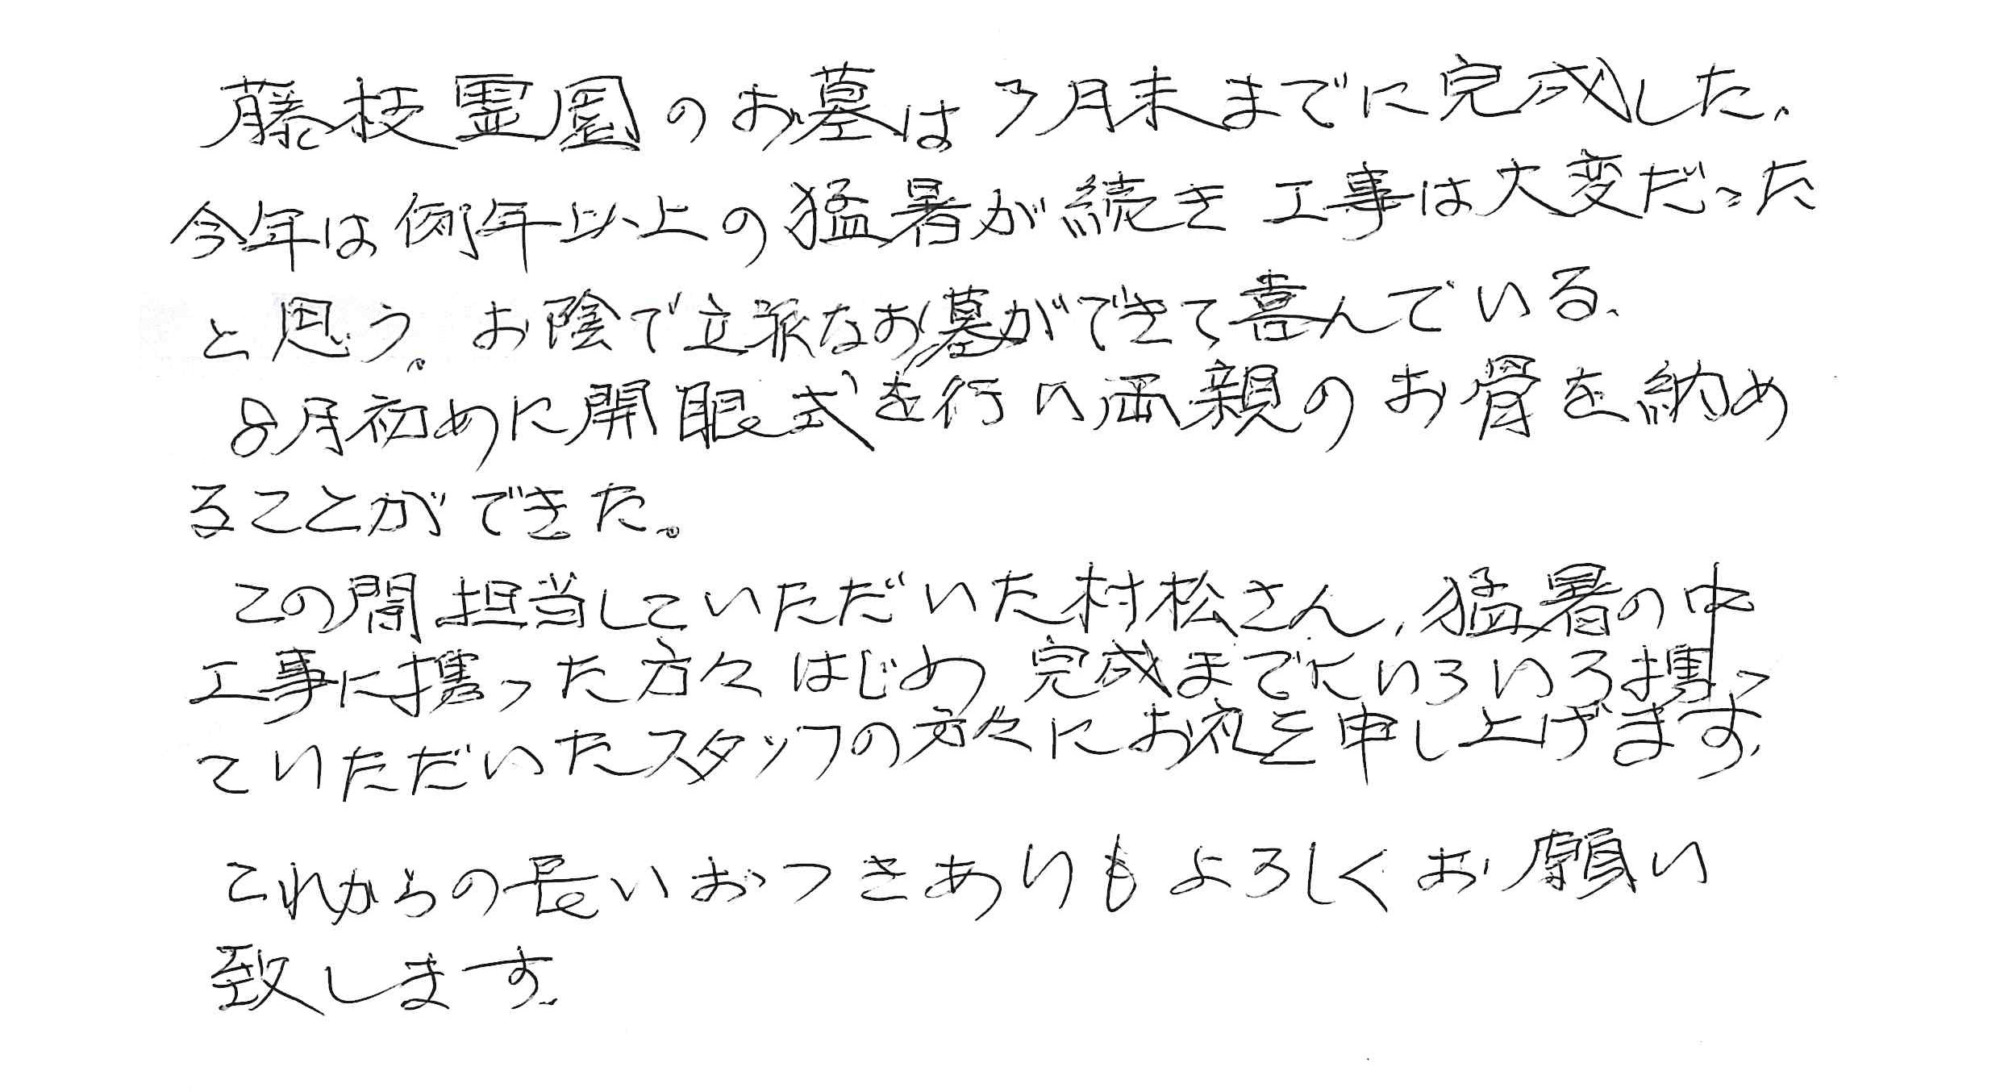 藤枝霊園のお墓は7月末までに完成した、
今年は例年以上の猛暑が続き工事は大変だった
と思う。お陰で立派なお墓ができて喜んでいる、
8月初めに開眼式を行い両親のお骨を納め
ることができた。
この間担当していただいた村松さん、猛暑の中
工事に携った方々はじめ完成までにいろいろ携っ
ていただいたスタッフの方々にお礼を申し上げます、
これからの長いおつきありもよろしくお願い
致します、